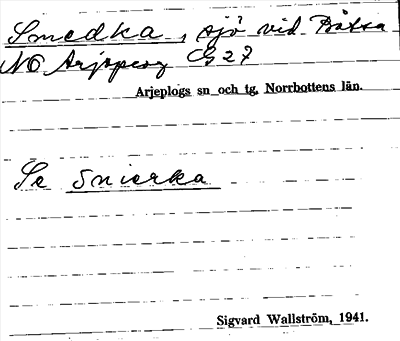 Smedka, sjö vid Båtsa
NO Arjeplog G27
Arjeplogs sn och tg, Norrbottens län.
Se Snierka
Sigvard Wallström, 1941.